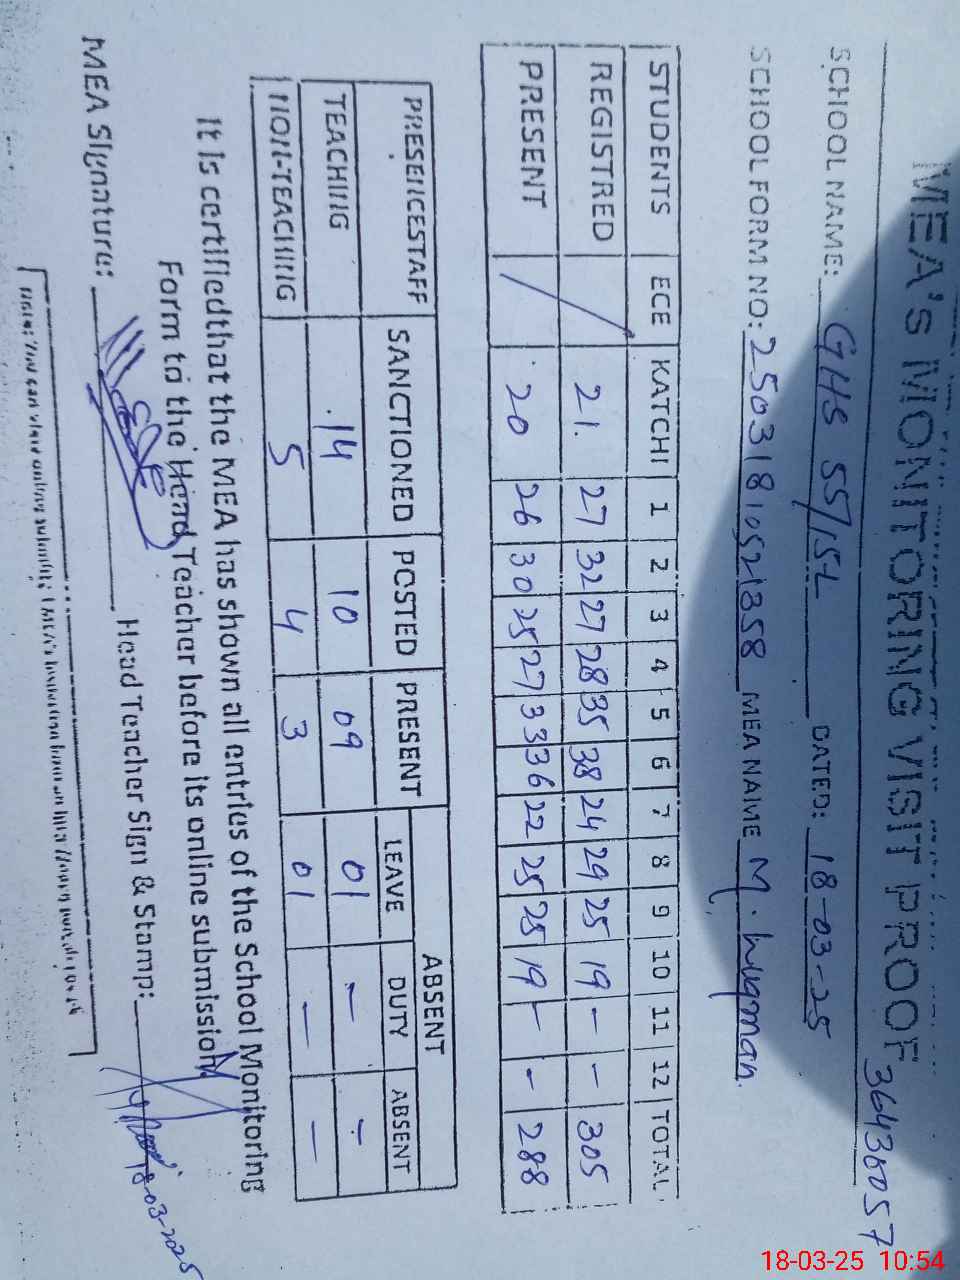 MEA's MONITORING VISIT PROOF 36438057
SCHOOL NAME: GHS 55/15L DATED: 18-03-25
SCHOOL FORM NO: 25031810521358 MEA NAME M. Luqman
STUDENTS ECE KATCHI 1 2 3 4 5 6 7 8 9 10 11 12 TOTAL
REGISTRED 21 27 32 27 28 35 38 24 29 25 19 - - 305
PRESENT 20 26 30 25 27 33 36 22 25 25 19 - - 288
PRESENCESTAFF SANCTIONED POSTED PRESENT ABSENT
LEAVE DUTY ABSENT
TEACHING 14 10 09 01 - -
NON-TEACHING 5 4 3 01 - -
It is certifiedthat the MEA has shown all entries of the School Monitoring
Form to the Head Teacher before its online submission
MEA Signature: Head Teacher Sign & Stamp: 18-03-2025
Note: You can view online
18-03-25 10:54